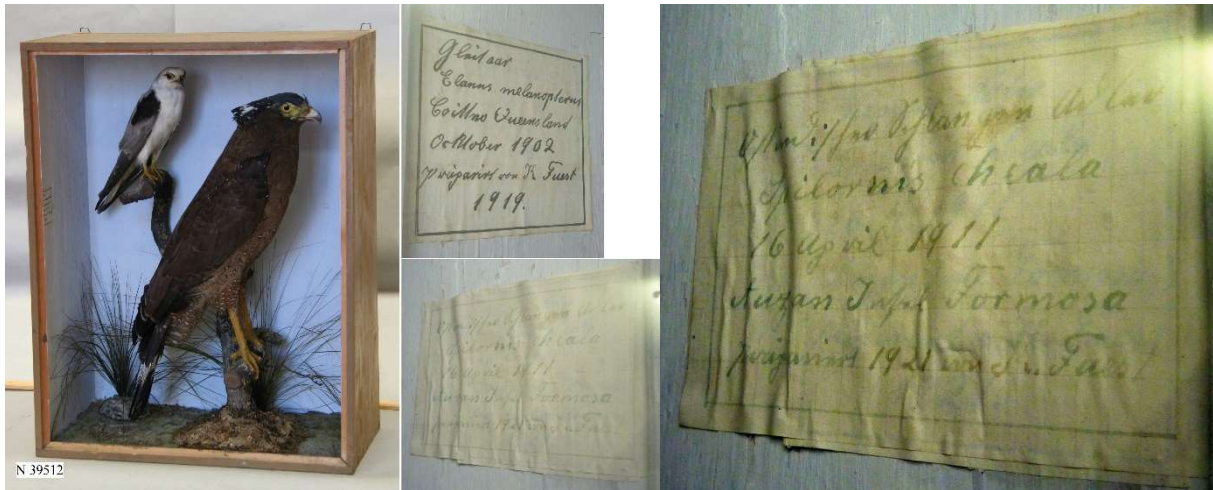 N 39512
Gleitaar
Elanus melanopterus
Queensland
Ocktober 1902
präparirt von K Fuest
1919.
Schlangen Adler
Spilornis Cheala
16 April 1911
Insel Formosa
präparirt 1921 von K. Fuest
Schlangen Adler
Spilornis Cheala
16 April 1911
Insel Formosa
präparirt 1921 von K. Fuest